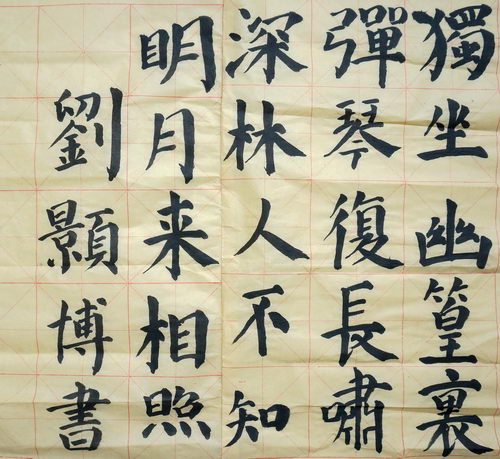 獨坐幽篁裏
彈琴復長嘯
深林人不知
明月来相照
劉顥博書